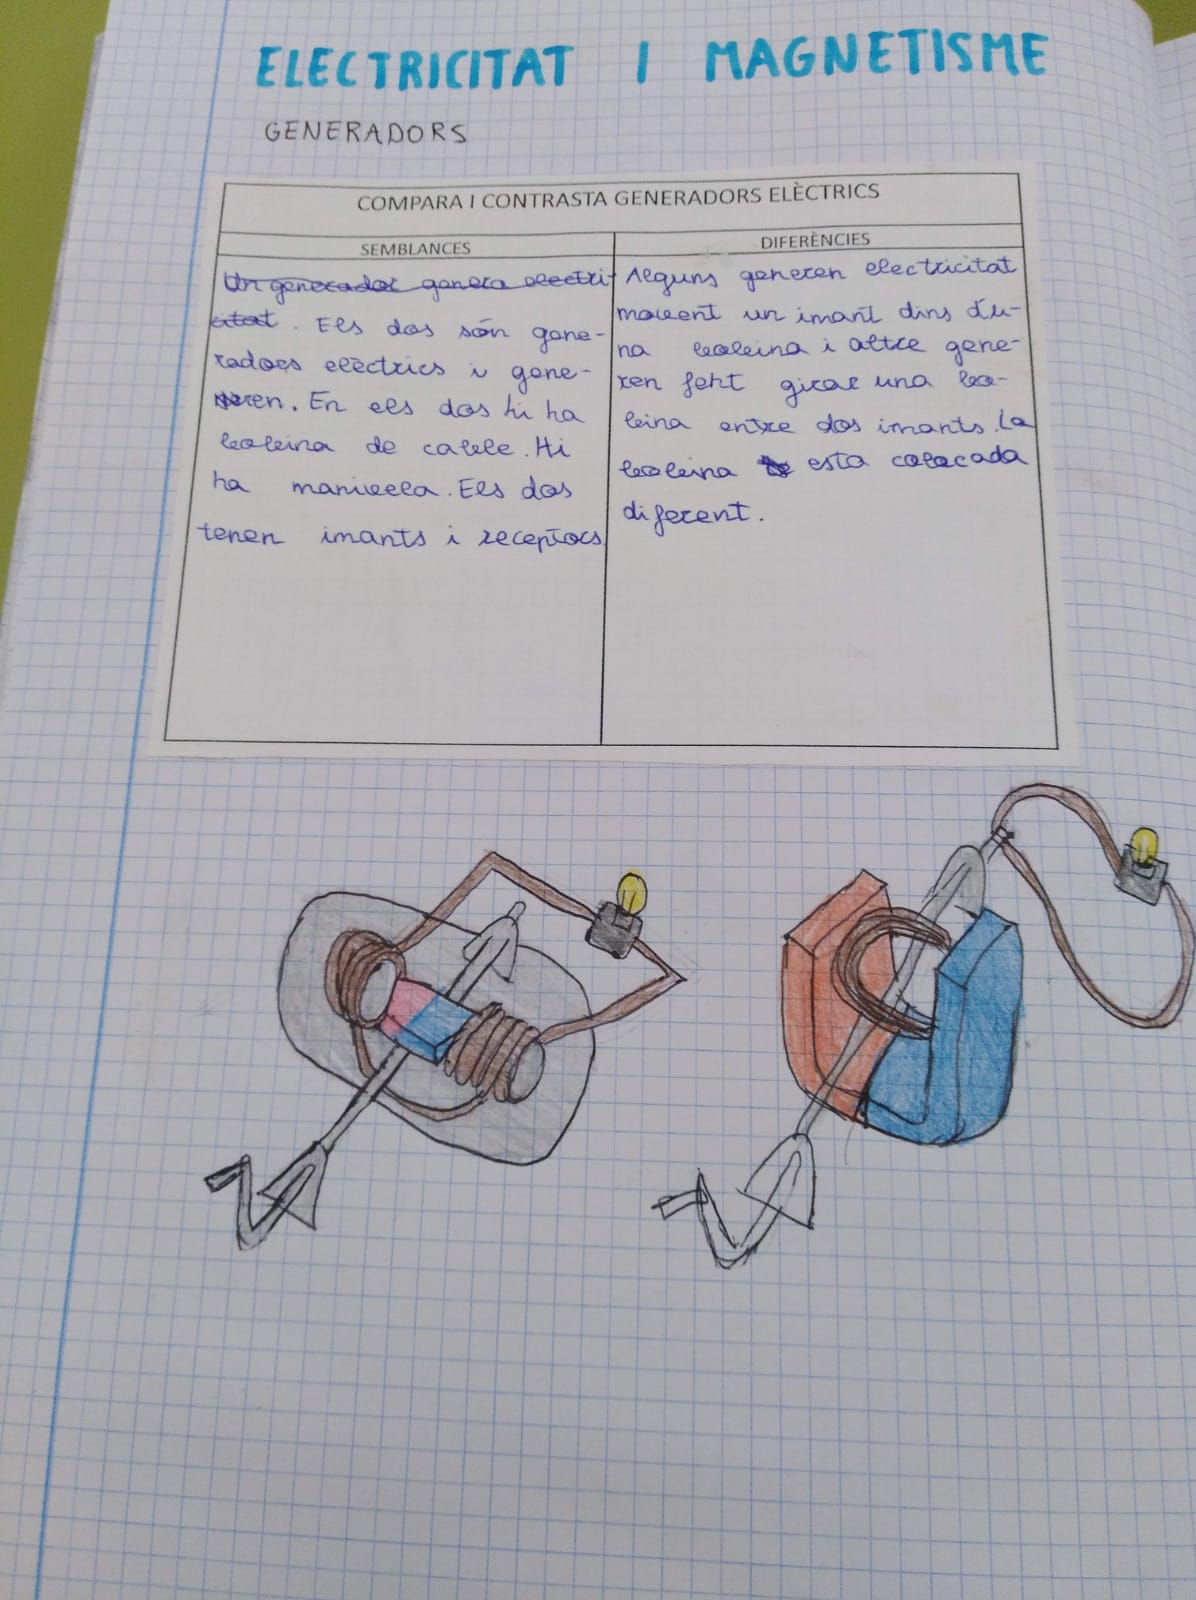 ELECTRICITAT I MAGNETISME
GENERADORS
COMPARA I CONTRASTA GENERADORS ELÈCTRICS
SEMBLANCES
Un generador genera electri-
citat. Els dos són gene-
radors elèctrics i gene-
ren. En els dos hi ha
bobina de cable. Hi
ha manivela. Els dos
tenen imants i receptors
DIFERÈNCIES
Alguns generen electricitat
movent un imant dins d'u-
na bobina i altre gene-
ren feht girar una bo-
bina entre dos imants. La
bobina esta colocada
diferent.